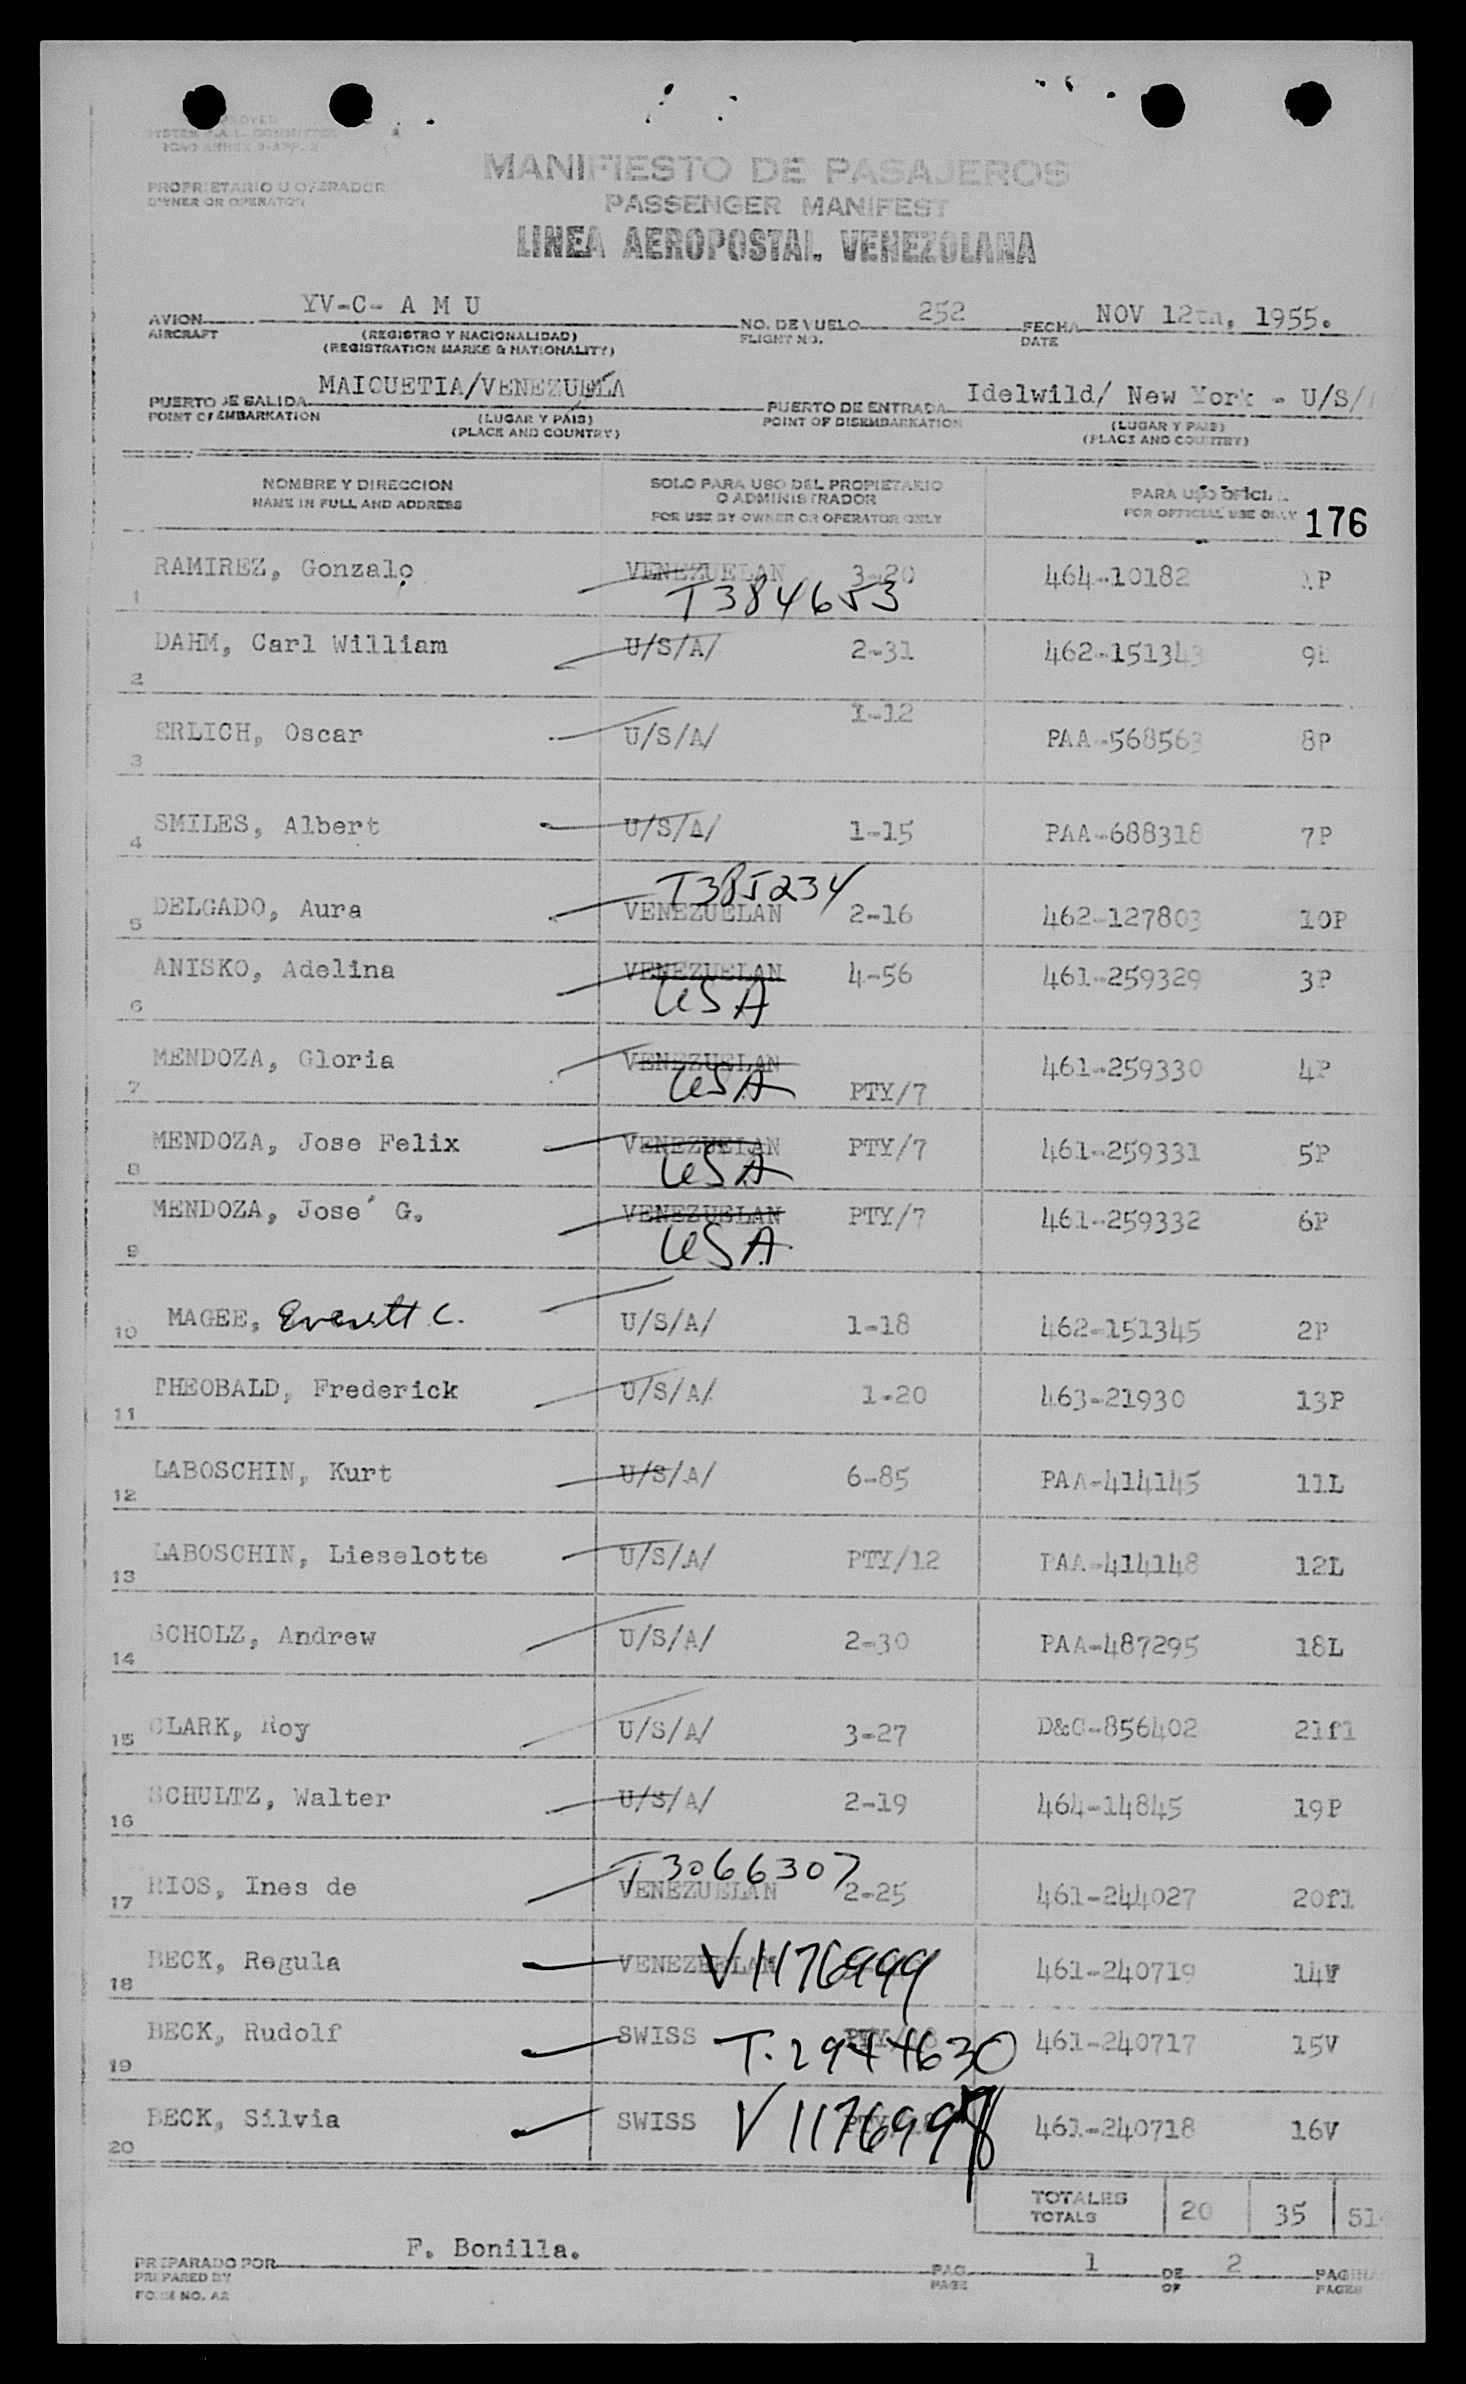 MANIFIESTO DE PASAJEROS
PROPRIETARIO U OPERADOR
OWNER OR OPERATOR
PASSENGER MANIFEST
LINEA AEROPOSTAL VENEZOLANA
AVION YV-C- A M U NO. DE VUELO 252 FECHA NOV 12th, 1955.
AIRCRAFT (REGISTRO Y NACIONALIDAD) FLIGHT NO. DATE
(REGISTRATION MARKS & NATIONALITY)
PUERTO DE SALIDA MAIQUETIA/VENEZUELA PUERTO DE ENTRADA Idelwild/ New York - U/S/
POINT OF EMBARKATION (LUGAR Y PAIS) POINT OF DISEMBARKATION (LUGAR Y PAIS)
(PLACE AND COUNTRY) (PLACE AND COUNTRY)
NOMBRE Y DIRECCION SOLO PARA USO DEL PROPIETARIO PARA USO OFICIAL
NAME IN FULL AND ADDRESS O ADMINISTRADOR FOR OFFICIAL USE ONLY 176
FOR USE BY OWNER OR OPERATOR ONLY
1 RAMIREZ, Gonzalo VENEZUELAN 3-20 464-10182 1P
T384653
2 DAHM, Carl William U/S/A/ 2-31 462-151343 9L
3 ERLICH, Oscar U/S/A/ 1-12 PAA-568563 8P
4 SMILES, Albert U/S/A/ 1-15 PAA-688318 7P
T385234
5 DELGADO, Aura VENEZUELAN 2-16 462-127803 10P
6 ANISKO, Adelina VENEZUELAN 4-56 461-259329 3P
USA
7 MENDOZA, Gloria VENEZUELAN PTY/7 461-259330 4P
USA
8 MENDOZA, Jose Felix VENEZUELAN PTY/7 461-259331 5P
USA
9 MENDOZA, Jose´ G. VENEZUELAN PTY/7 461-259332 6P
USA
10 MAGEE, Everett C. U/S/A/ 1-18 462-151345 2P
11 THEOBALD, Frederick U/S/A/ 1-20 463-21930 13P
12 LABOSCHIN, Kurt U/S/A/ 6-85 PAA-414145 11L
13 LABOSCHIN, Lieselotte U/S/A/ PTY/12 PAA-414148 12L
14 SCHOLZ, Andrew U/S/A/ 2-30 PAA-487295 18L
15 CLARK, Roy U/S/A/ 3-27 D&C-856402 21fl
16 SCHULTZ, Walter U/S/A/ 2-19 464-14845 19P
T3066307
17 RIOS, Ines de VENEZUELAN 2-25 461-244027 20fl
18 BECK, Regula VENEZUELAN V1176999 461-240719 14V
19 BECK, Rudolf SWISS T.2944630 461-240717 15V
20 BECK, Silvia SWISS V1176998 461-240718 16V
TOTALES 20 35
TOTALS
PREPARADO POR F. Bonilla. PAG. 1 DE 2 PAGINAS
PREPARED BY PAGE OF PAGES
FORM NO. A2